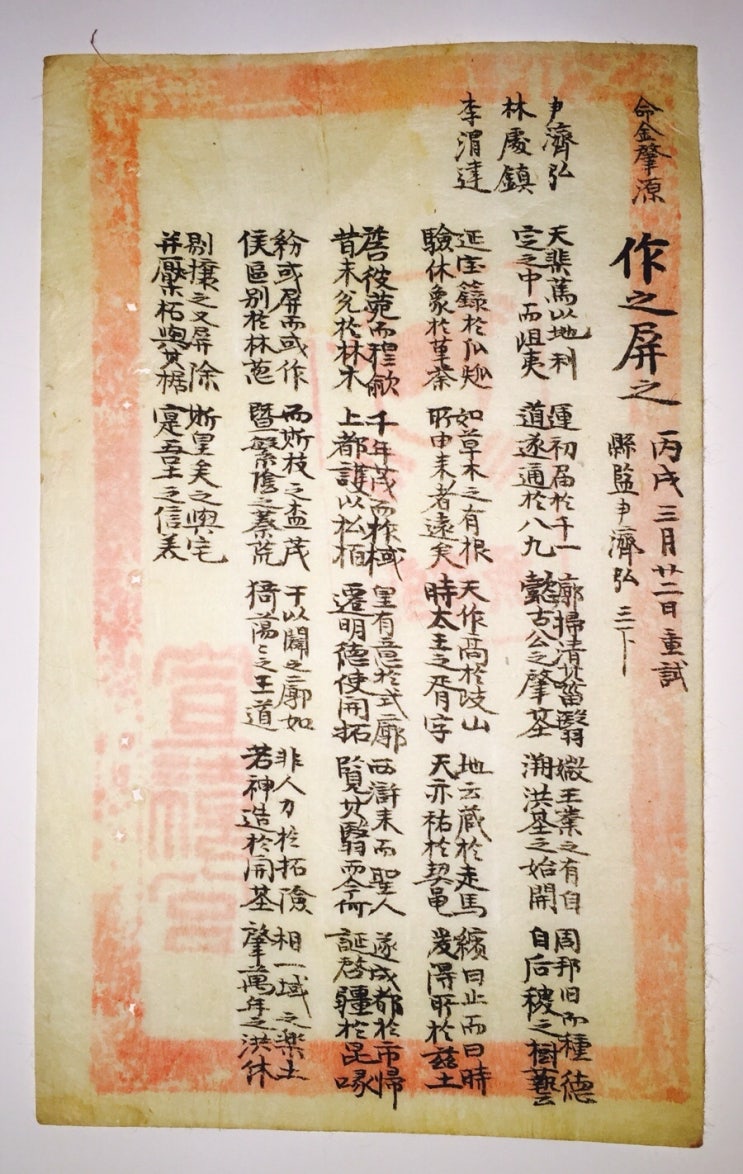 命金肇源
作之屛之
丙戌三月廿二日重試
縣監尹濟弘 三下
尹濟弘
林處鎭
李渭達
天棐篤以地利 運初届於千一 廓掃清其菑翳 王業之有自 周邦旧而種德
定之中而岨夷 道遂通於八九 懿古公之肇基 溯洪基之始開 自后稷之樹藝
延宝籙於瓜瓞 如草木之有根 天作高於岐山 地云蔵於走馬 繽曰止而曰時
驗休象於菫荼 所由来者遠矣 時太王之胥宇 天亦祐於契龜 爰得所於茲土
啓彼菀而 千年茂而作棫 皇有意於式廓 西滸来而聖人 遂成都於市歸
昔未兌於林木 上都護以松栢 遷明德使開拓 覽其翳而今何 誕啓疆於昆喙
紛或屛而或作 而斯枝之盍茂 于以闢之廓如 非人力於拓險 相一域之樂土
俟區別於林葱 曁繁陰之蓁荒 猗蕩々之王道 若神造於開基 肇萬年之洪休
剔攘之又屛除 斯皇矣之與宅
幷厥柘與其椐 寔吾王之信美